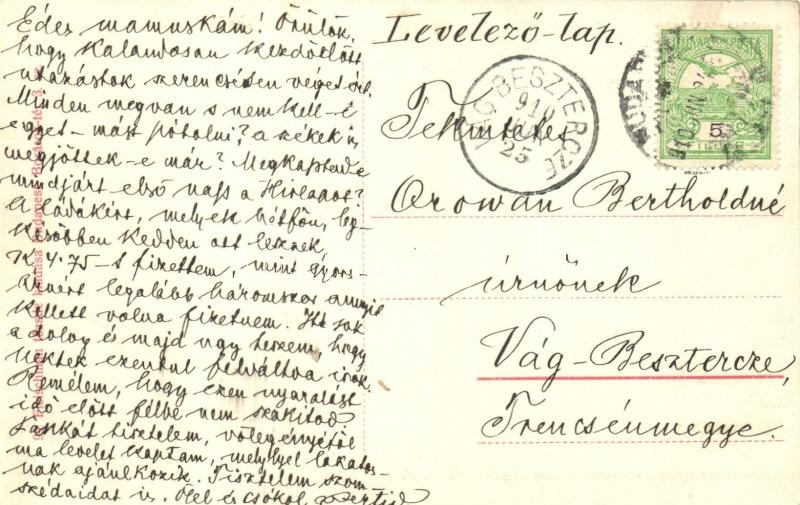 Édes mamuskám! Örülök,
hogy kalandosan kezdődött
utazástok szerencsésen véget ért.
Minden megvan s nem kell-e
egyet-mást pótolni? a székek is
megjöttek-e már? Megkaptad-e
mindjárt első nap a Hirlapot?
A ládákért, melyek hétfőn, leg-
későbben kedden ott lesznek,
K 4.75-t fizettem, mint gyors-
áruért legalább háromszor annyit
kellett volna fizetnem. Itt sok
a dolog és majd ugy teszem, hogy
Nektek ezentul felváltva irok.
Remélem, hogy ezen nyaralást
idő előtt félbe nem szakitod
Jankát tisztelem, vőlegényétől
ma levelet kaptam, melylyel lakatos-
nak ajánlkozik. Tisztelem szom-
szédaidat is. Ölel és csókol
Levelező-lap.
Tekintetes
Orowan Bertholdné
úrnőnek
Vág-Besztercze,
Trencsénmegye.
VÁG-BESZTERCZE
910
25
MAGYAR KIR. POSTA
5
BUDAPEST